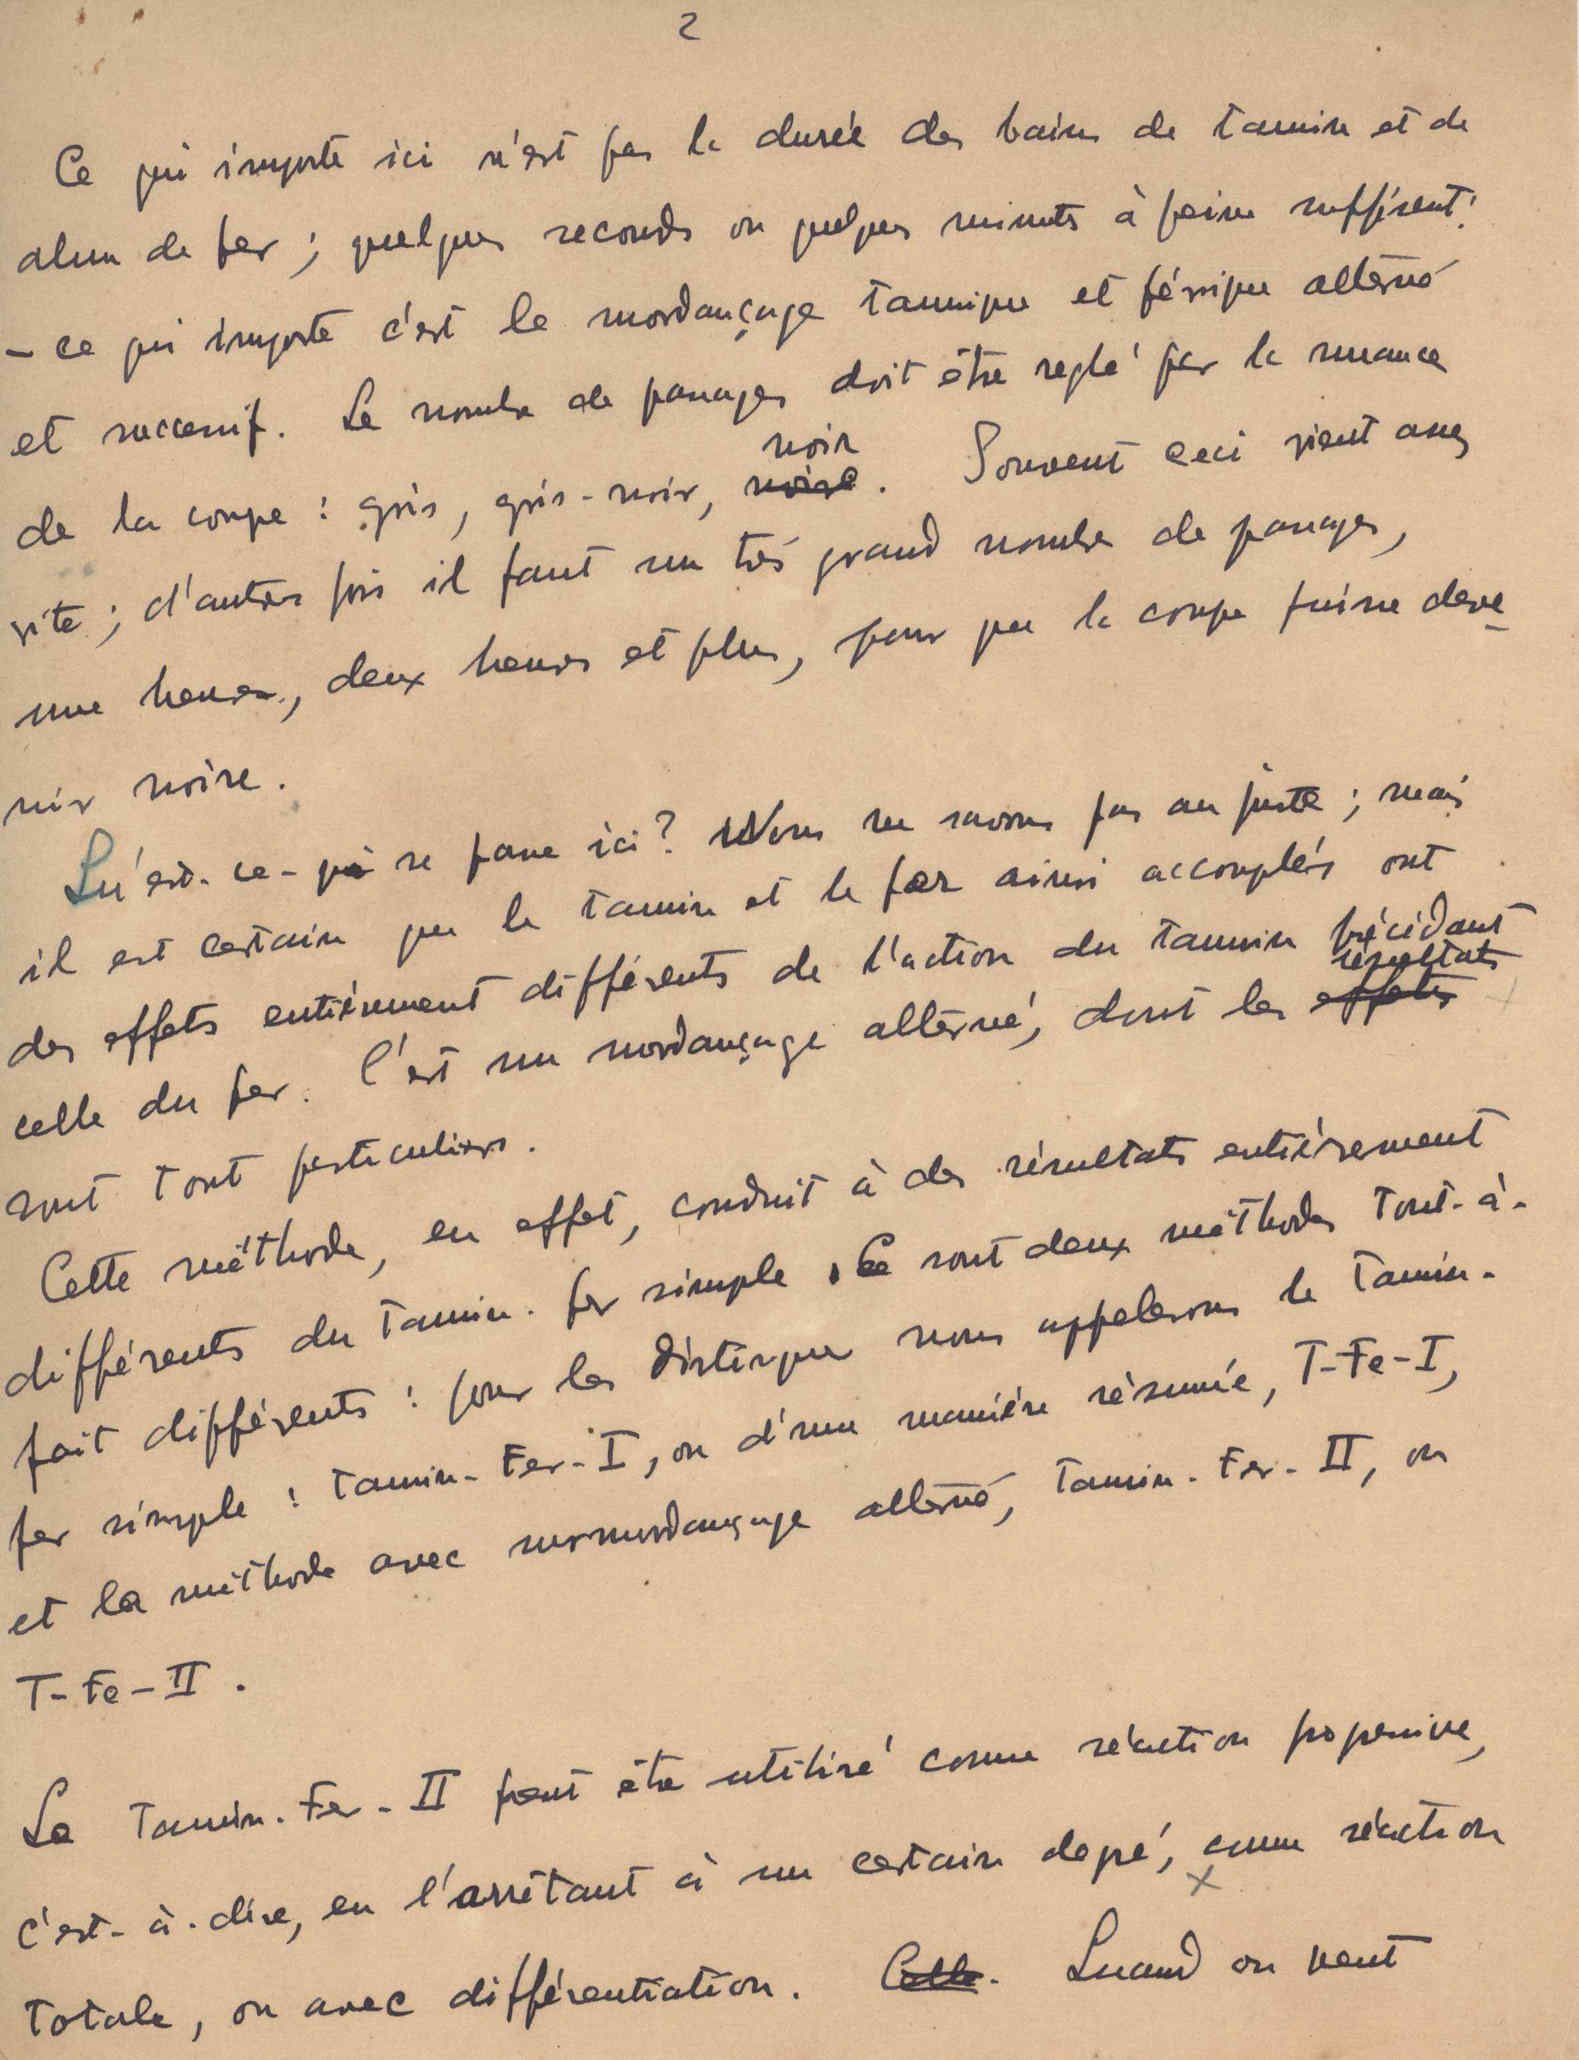 2
Ce qui importe ici n'est pas la durée des bains de tannin et de
alun de fer ; quelques secondes ou quelques minutes à peine suffisent :
– ce qui importe c'est le mordançage tannique et férrique alterné
et successif. Le nombre de passages doit être reglé par la nuance
noir
de la coupe : gris, gris-noir, noire. Souvent ceci vient assez
vite ; d'autres fois il faut un très grand nombre de passages,
une heure, deux heures et plus, pour que la coupe puisse deve
nir noire.
Qu'est-ce-qui se passe ici ? Nous ne savons pas au juste ; mais
il est certain que le tannin et le fer ainsi accouplés ont
des effets entièrement différents de l'action du tannin précédant
résultats
celle du fer. C'est un mordançage alterné, dont les effets
sont tout particuliers.
Cette méthode, en effet, conduit à des résultats entièrement
différents du tannin-fer simple. Ce sont deux méthodes tout-à-
fait différents : pour les distinguer nous appelerons le tannin-
fer simple : Tannin-Fer-I, ou d'une manière résumée, T-Fe-I,
et la méthode avec surmordançage alterné, Tannin-Fer-II, ou
T-Fe-II.
Le Tannin-Fer-II peut être utilisé comme réaction progressive,
c'est-à-dire, en l'arrêtant à un certain degré, comme réaction
x
totale, ou avec différentiation. Cette. Quand on veut